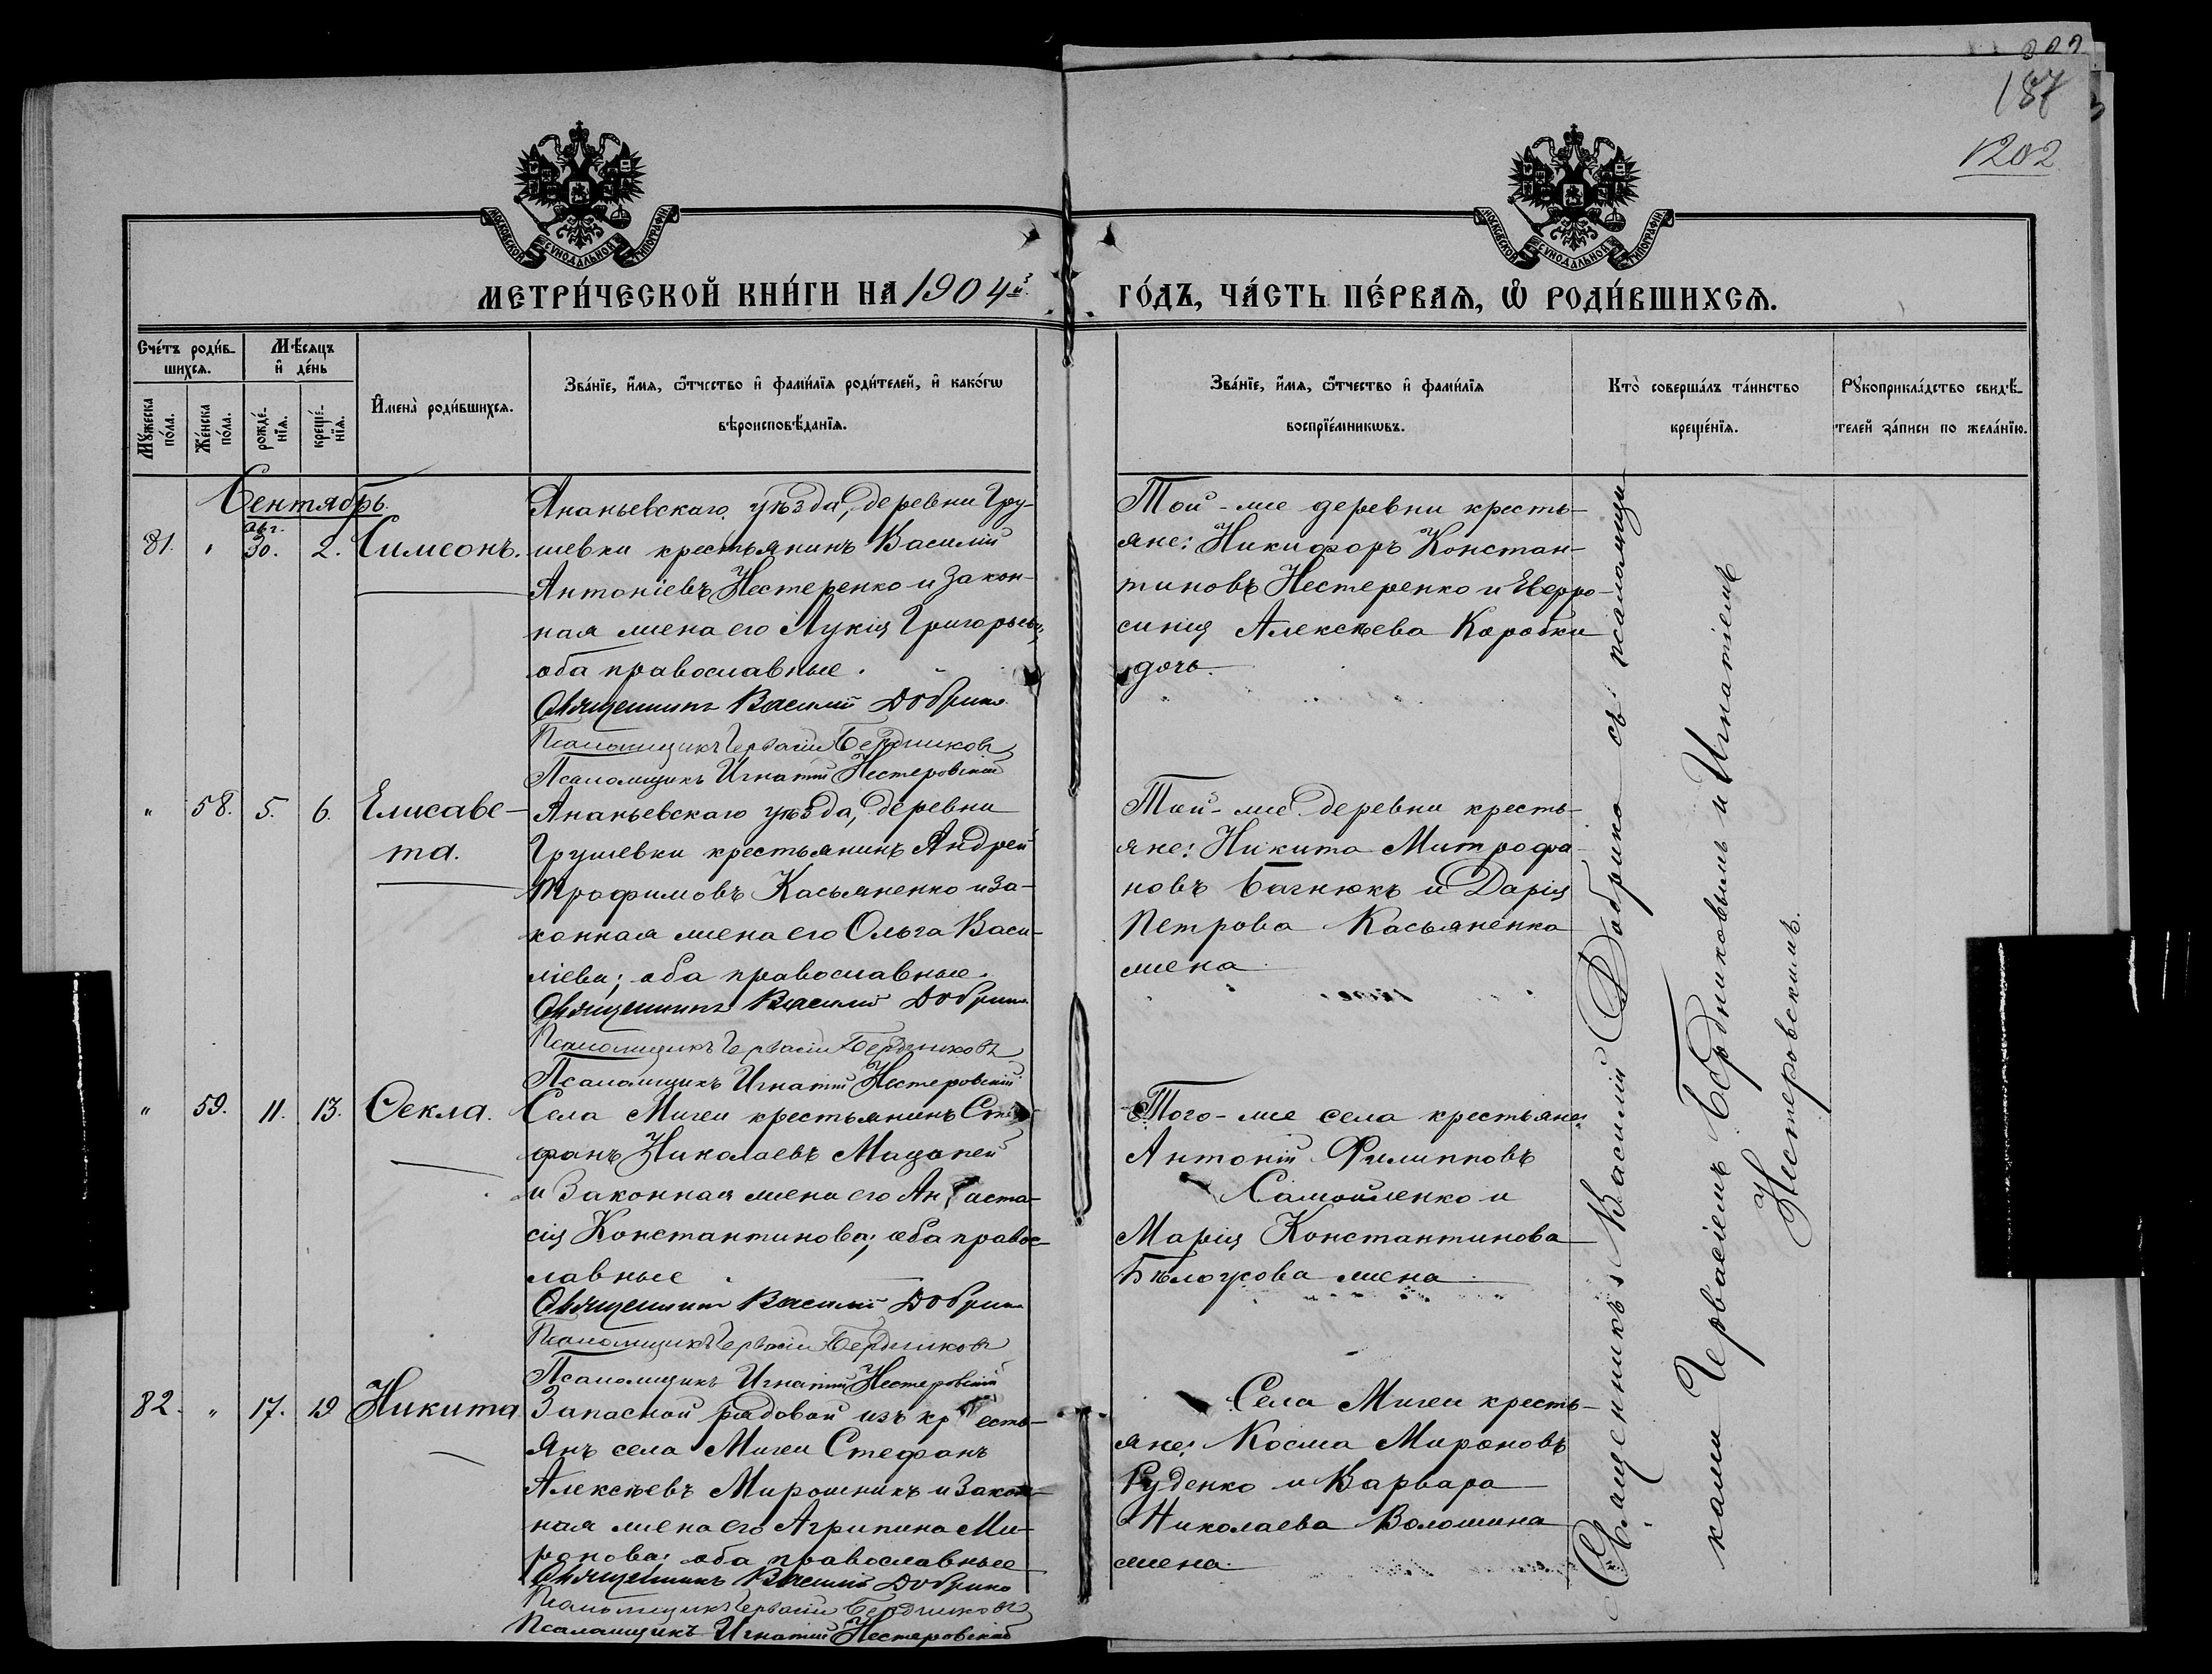 187
1202
МОСКОВСКОЙ СѴНОДАЛЬНОЙ ТИПОГРАФІИ
МОСКОВСКОЙ СѴНОДАЛЬНОЙ ТИПОГРАФІИ
МЕТРИ́ЧЕСКОЙ КНИ́ГИ НА 1904й
ГО́ДЪ, ЧА́СТЬ ПЕ́РВАѦ, Ѽ РОДИ́ВШИХСѦ.
Счéтъ роди́в-
шихсѧ.
Мꙋ́жеска
по́ла.
Же́нска
по́ла.
Мѣ́сѧцъ
и҆ де́нь
рожде́-
нїѧ.
креще́-
нїѧ.
И҆мена̀ роди́вшихсѧ.
Зва́нїе, и҆́мѧ, ѻ҆́тчество и҆ фами́лїѧ роди́телей, и҆ како́гѡ
вѣроисповѣ́данїѧ.
Зва́нїе, и҆́мѧ, ѻ҆́тчество и҆ фами́лїѧ
воспрїе́мникѡвъ.
Кто̀ соверша́лъ та́инство
креще́нїѧ.
Рꙋкоприкла́дство свидѣ́-
телей за́писи по жела́нїю.
Сентябрь.
81. " авг. 30. 2. Симеонъ.
Ананьевскаго уѣзда, деревни Гру-
шевки крестьянинъ Василій
Антоніевъ Нестеренко и закон-
ная жена его Лукія Григорьева,
оба православные.
Священникъ Василій Добрино
Псаломщикъ Гервасій Бердниковъ
Псаломщикъ Игнатій Нестеровскій
Той-же деревни кресть-
яне: Никифоръ Констан-
тиновъ Нестеренко и Евфро-
синія Алексѣева Коробки
дочь.
" 58. 5. 6. Елисаве-
та.
Ананьевскаго уѣзда, деревни
Грушевки крестьянинъ Андрей
Трофимовъ Касьяненко и за-
конная жена его Ольга Васи-
ліева; оба православные.
Священникъ Василій Добрино
Псаломщикъ Гервасій Бердниковъ
Псаломщикъ Игнатій Нестеровскій
Той-же деревни кресть-
яне: Никита Митрофа-
новъ Багнюкъ и Дарія
Петрова Касьяненка
жена.
" 59. 11. 13. Ѳекла.
Села Мигеи крестьянинъ Сте-
фанъ Николаевъ Мацапей
и законная жена его Анаста-
сія Константинова; оба правос-
лавные
Священникъ Василій Добрино
Псаломщикъ Гервасій Бердниковъ
Псаломщикъ Игнатій Нестеровскій
Того-же села крестьяне:
Антоній Филипповъ
Самойленко и
Марія Константинова
Бѣлоусова жена.
82. " 17. 19 Никита
Запасной рядовой изъ кресть-
янъ села Мигеи Стефанъ
Алексѣевъ Мирошникъ и закон-
ная жена его Агрипина Ми-
ронова: оба православные
Священникъ Василій Добрино
Псаломщикъ Гервасій Бердниковъ
Псаломщикъ Игнатій Нестеровскій
Села Мигеи кресть-
яне: Косма Мироновъ
Руденко и Варвара
Николаева Волошина
жена.
Священникъ Василій Добрино съ псаломщи-
ками Гервасіемъ Бердниковымъ и Игнатіемъ
Нестеровскимъ.